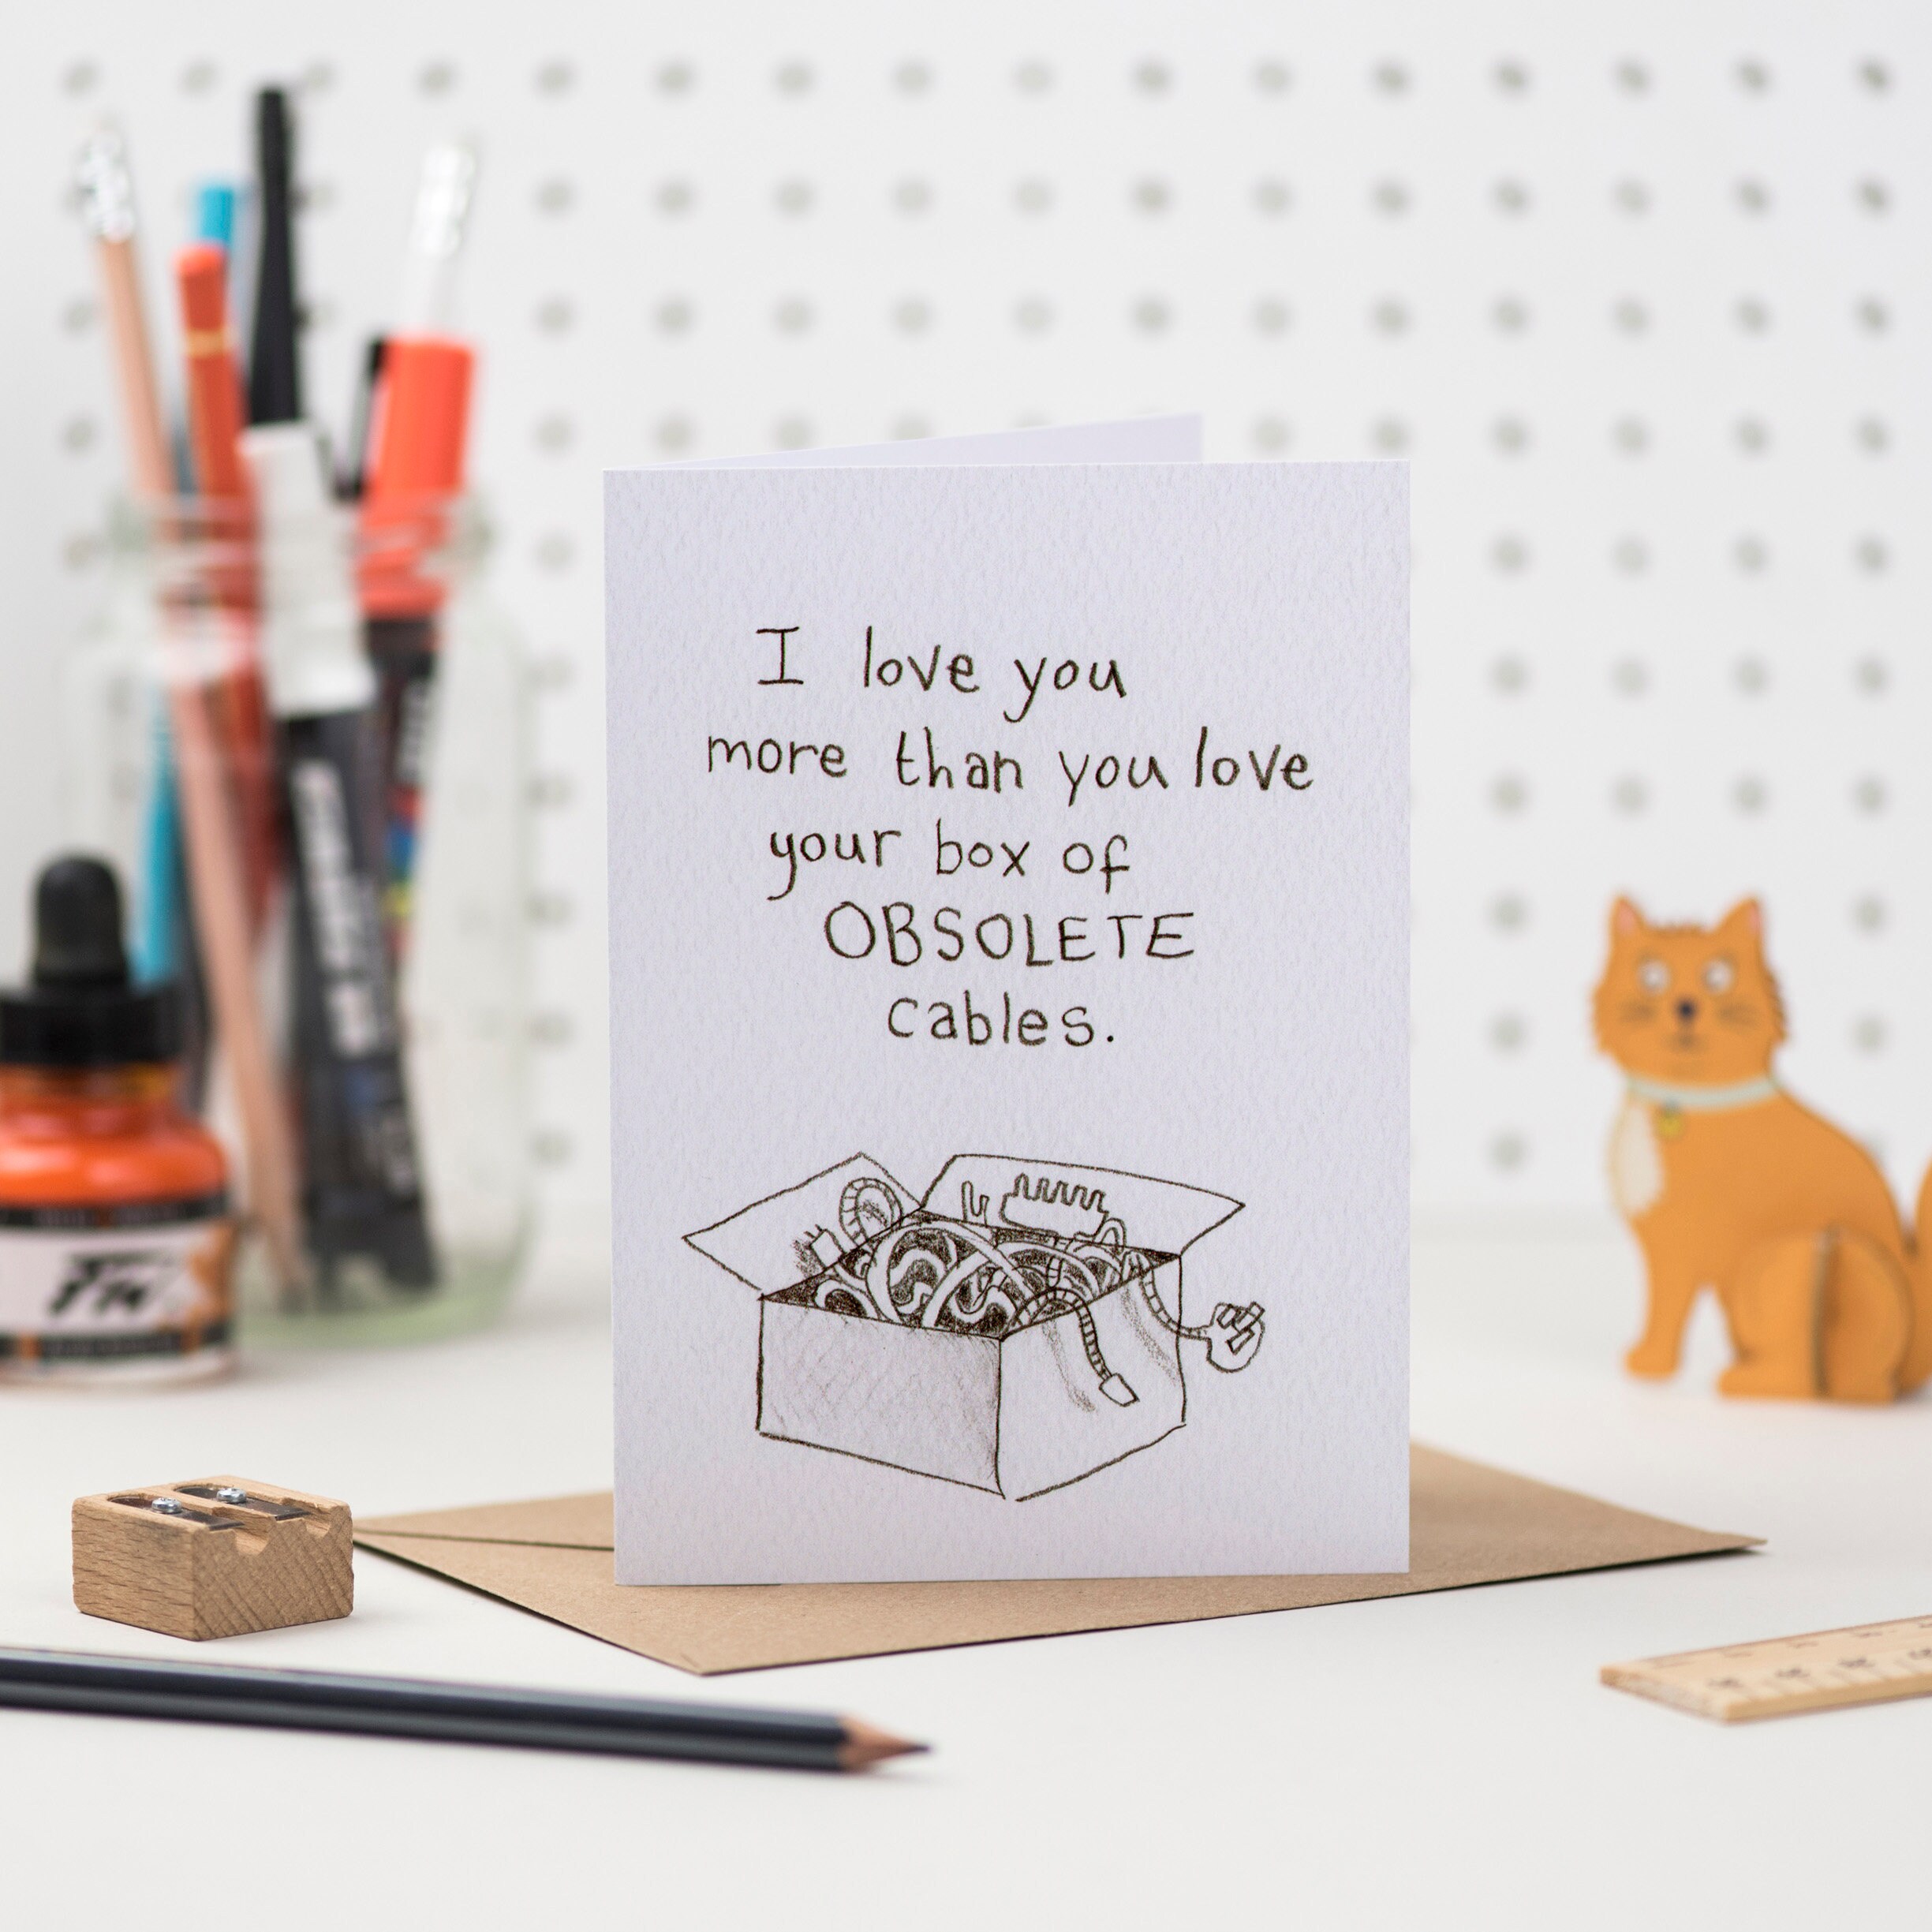 I love you
more than you love
your box of
OBSOLETE
cables.
FW